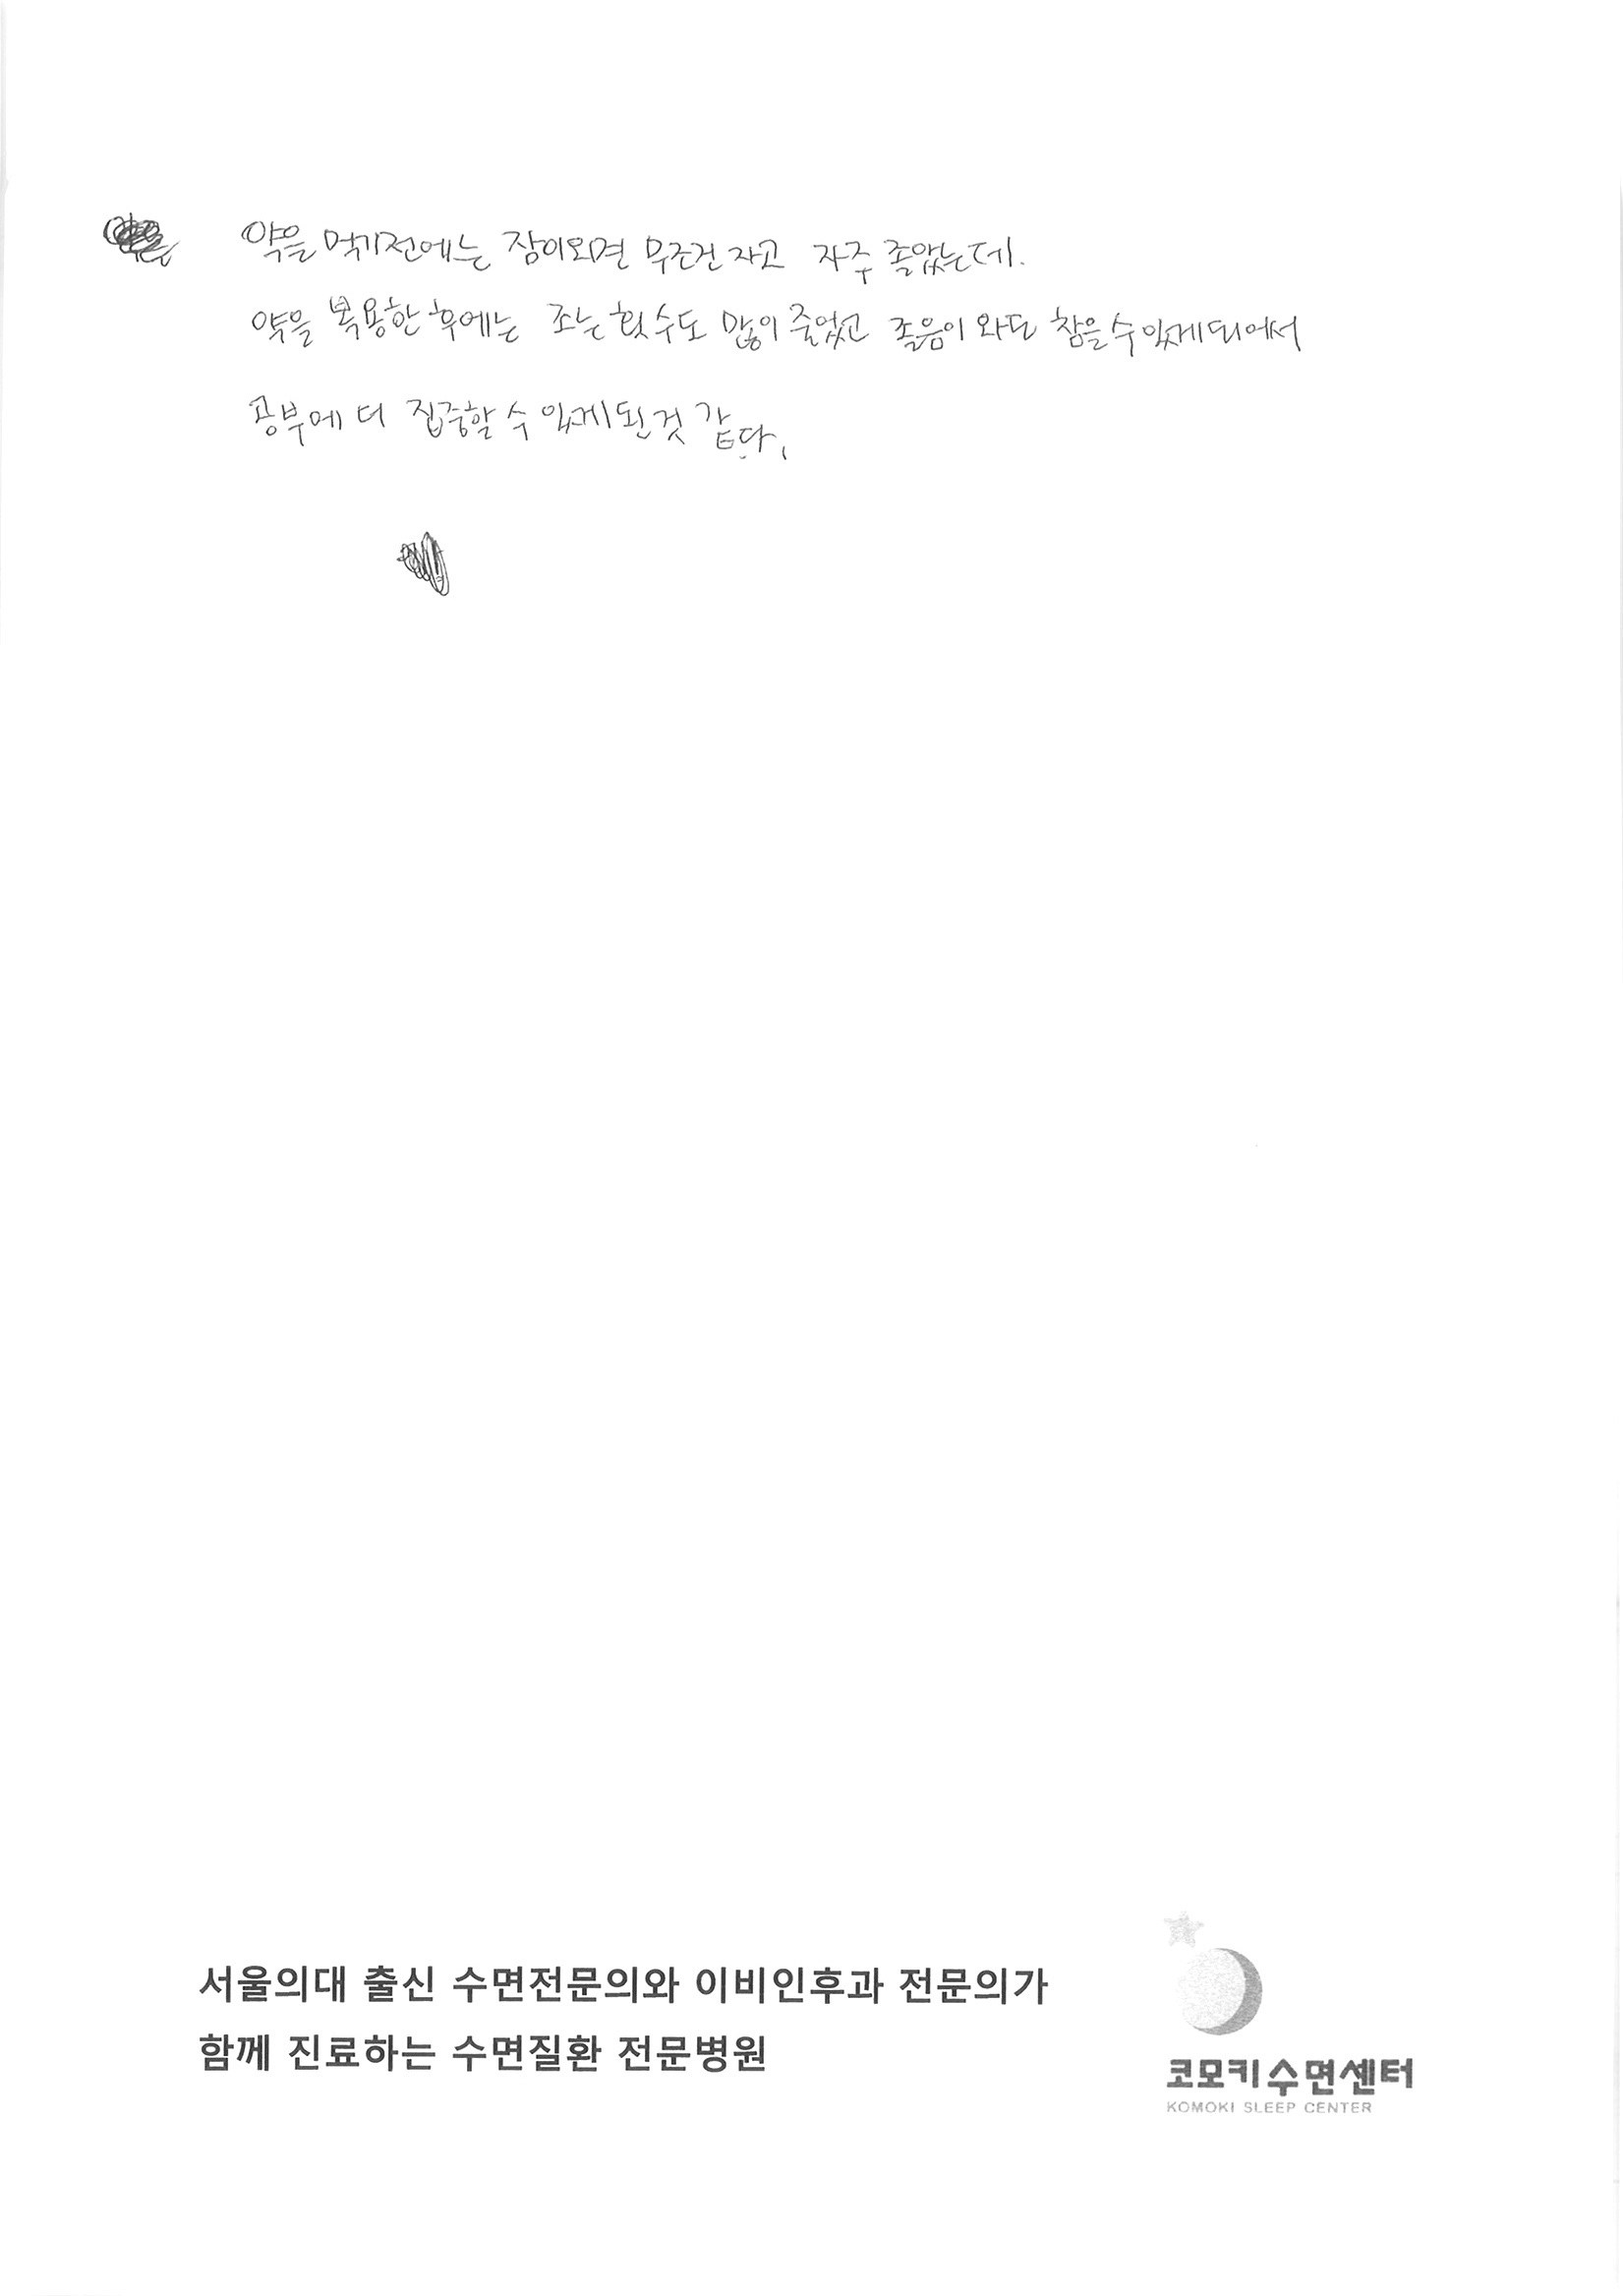 약을 먹기전에는 잠이오면 무조건 자고 자주 졸았는데.
약을 복용한 후에는 조는 횟수도 많이 줄었고 졸음이 와도 참을 수 있게 되어서
공부에 더 집중할 수 있게 된 것 같다.
서울의대 출신 수면전문의와 이비인후과 전문의가
함께 진료하는 수면질환 전문병원
코모키수면센터
KOMOKI SLEEP CENTER